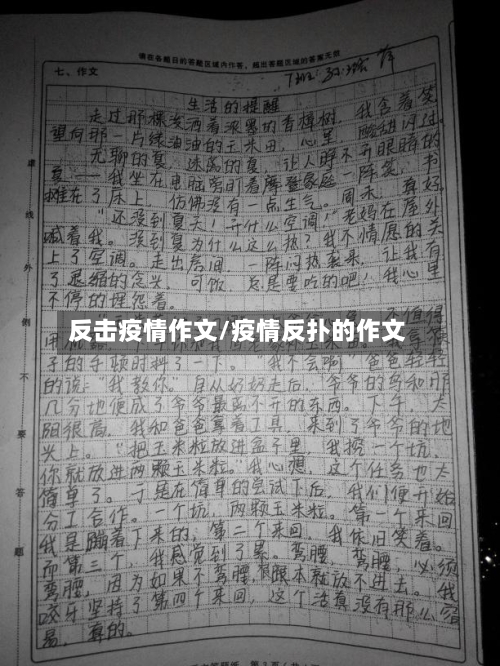 请在各题目的答题区域内作答，超出答题区域的答案无效
七、作文
7班
生活的提醒
走过那棵泼洒着浓墨的香樟树，我含着笑
望向那一片绿油油的玉米田，心里
无聊的夏，迷离的夏，让人睁不开眼睛的
夏……我坐在电脑旁盯着屏幕家庭一阵笑，书
摊在了床上，仿佛没有一点生气。周末，真好
“还没到夏天！开什么空调！”老妈在屋外
喊着我。没到夏为什么这么热？我不情愿的关
上了空调。走出房间，一阵闷热袭来，让我有
了退缩的念头，可饭，总是要吃的吧！我心里
不停的埋怨着。
反击疫情作文/疫情反扑的作文
子的手顿时抖了一下。“我不会啊”爸爸轻轻
的说，“我教你。”自从奶奶走后，爷爷的鸟和那
几分地便成了爷爷最离不开的东西。下午，太
阳很高，我和爸爸拿着工具，来到了爷爷的地
头上。“把玉米粒放进盆子里，我挖一个坑，
你就放进两颗玉米粒。”我心想，这个任务也太
简单了。于是在简单的尝试下后，我们便开始
分工合作。一个坑，两颗玉米粒。第一个来回
我是蹦着下来的，第二个来回，我依旧笑着。
而第三个，我感觉到了累。弯腰，弯腰，必须
弯腰，因为如果不弯腰，根本就放不进去。我
咬牙坚持了第四个来回，这个活真没有那么容
易，真的。